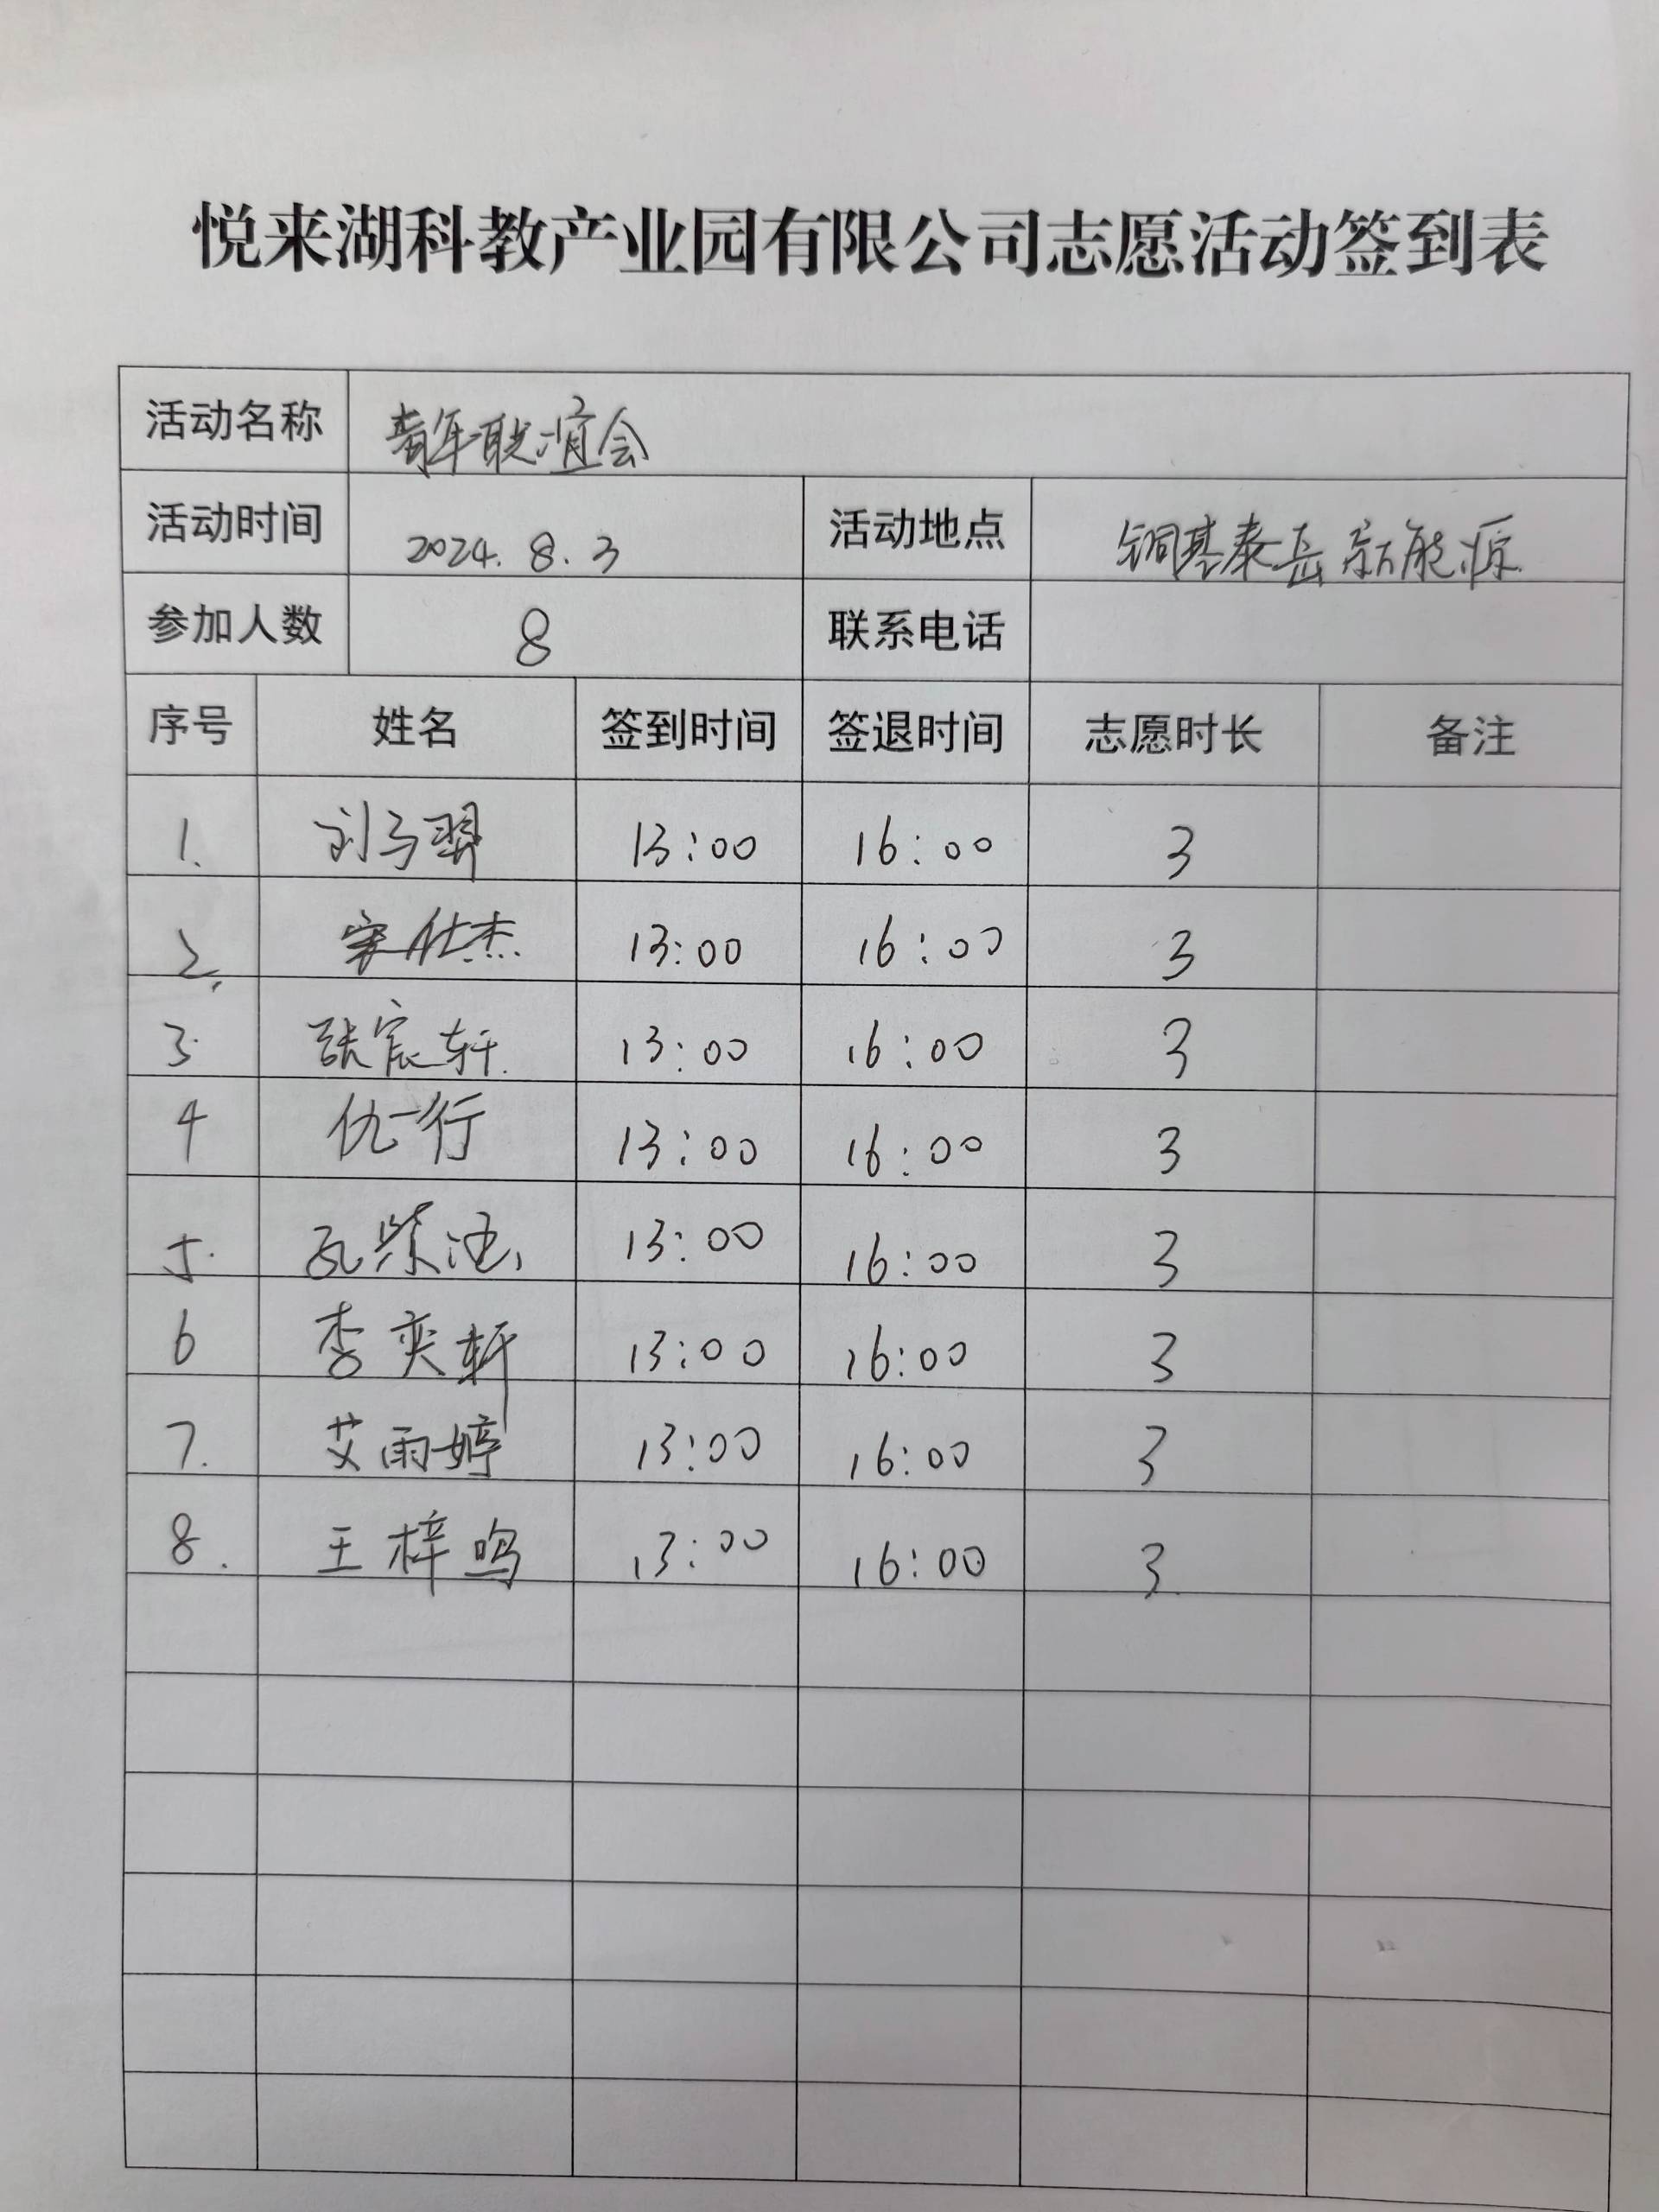 悦来湖科教产业园有限公司志愿活动签到表
活动名称 青年联谊会
活动时间 2024.8.3 活动地点 铜基泰岳新能源
参加人数 8 联系电话
序号 姓名 签到时间 签退时间 志愿时长 备注
1. 刘子翼 13:00 16:00 3
2. 宋仕杰 13:00 16:00 3
3. 张宸轩 13:00 16:00 3
4 仇一行 13:00 16:00 3
5. 13:00 16:00 3
6 李奕轩 13:00 16:00 3
7. 艾雨婷 13:00 16:00 3
8. 王梓鸣 13:00 16:00 3